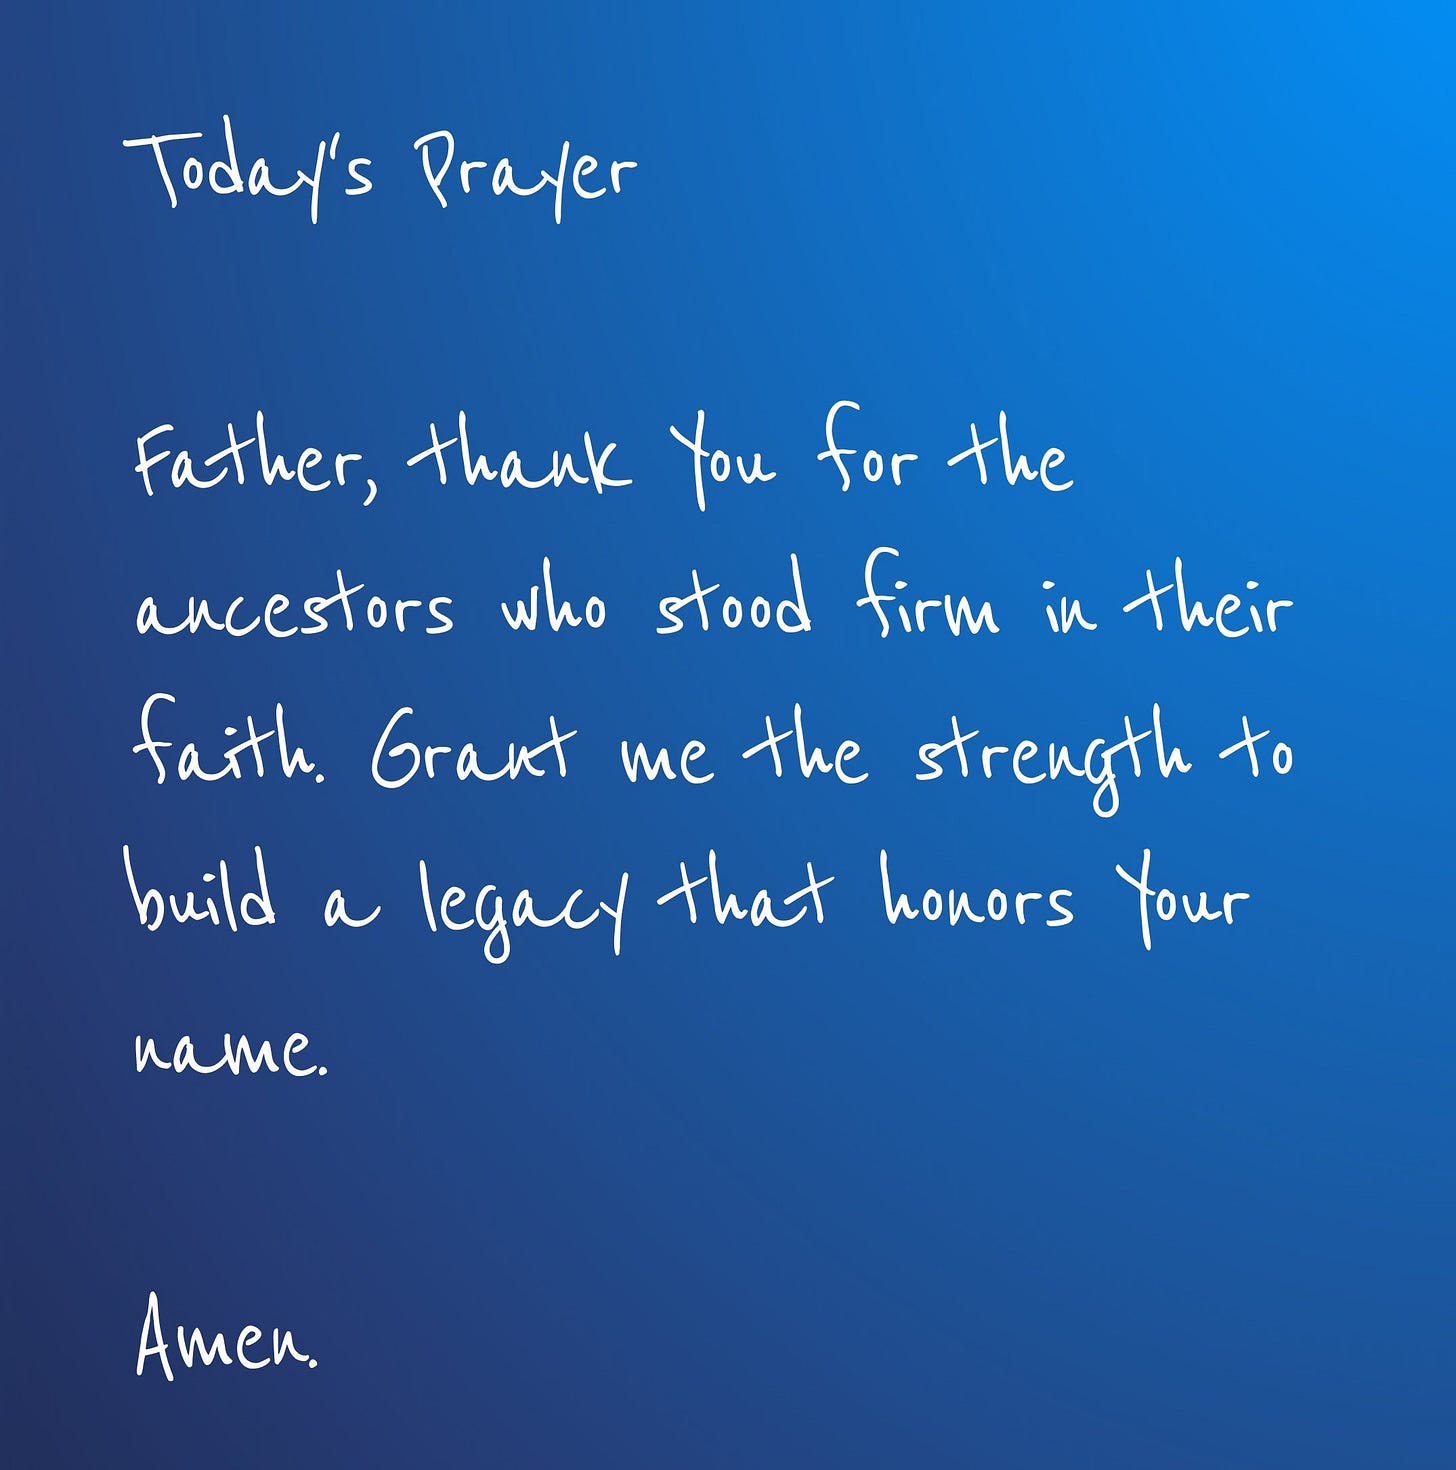 Today's Prayer
Father, thank You for the
ancestors who stood firm in their
faith. Grant me the strength to
build a legacy that honors Your
name.
Amen.